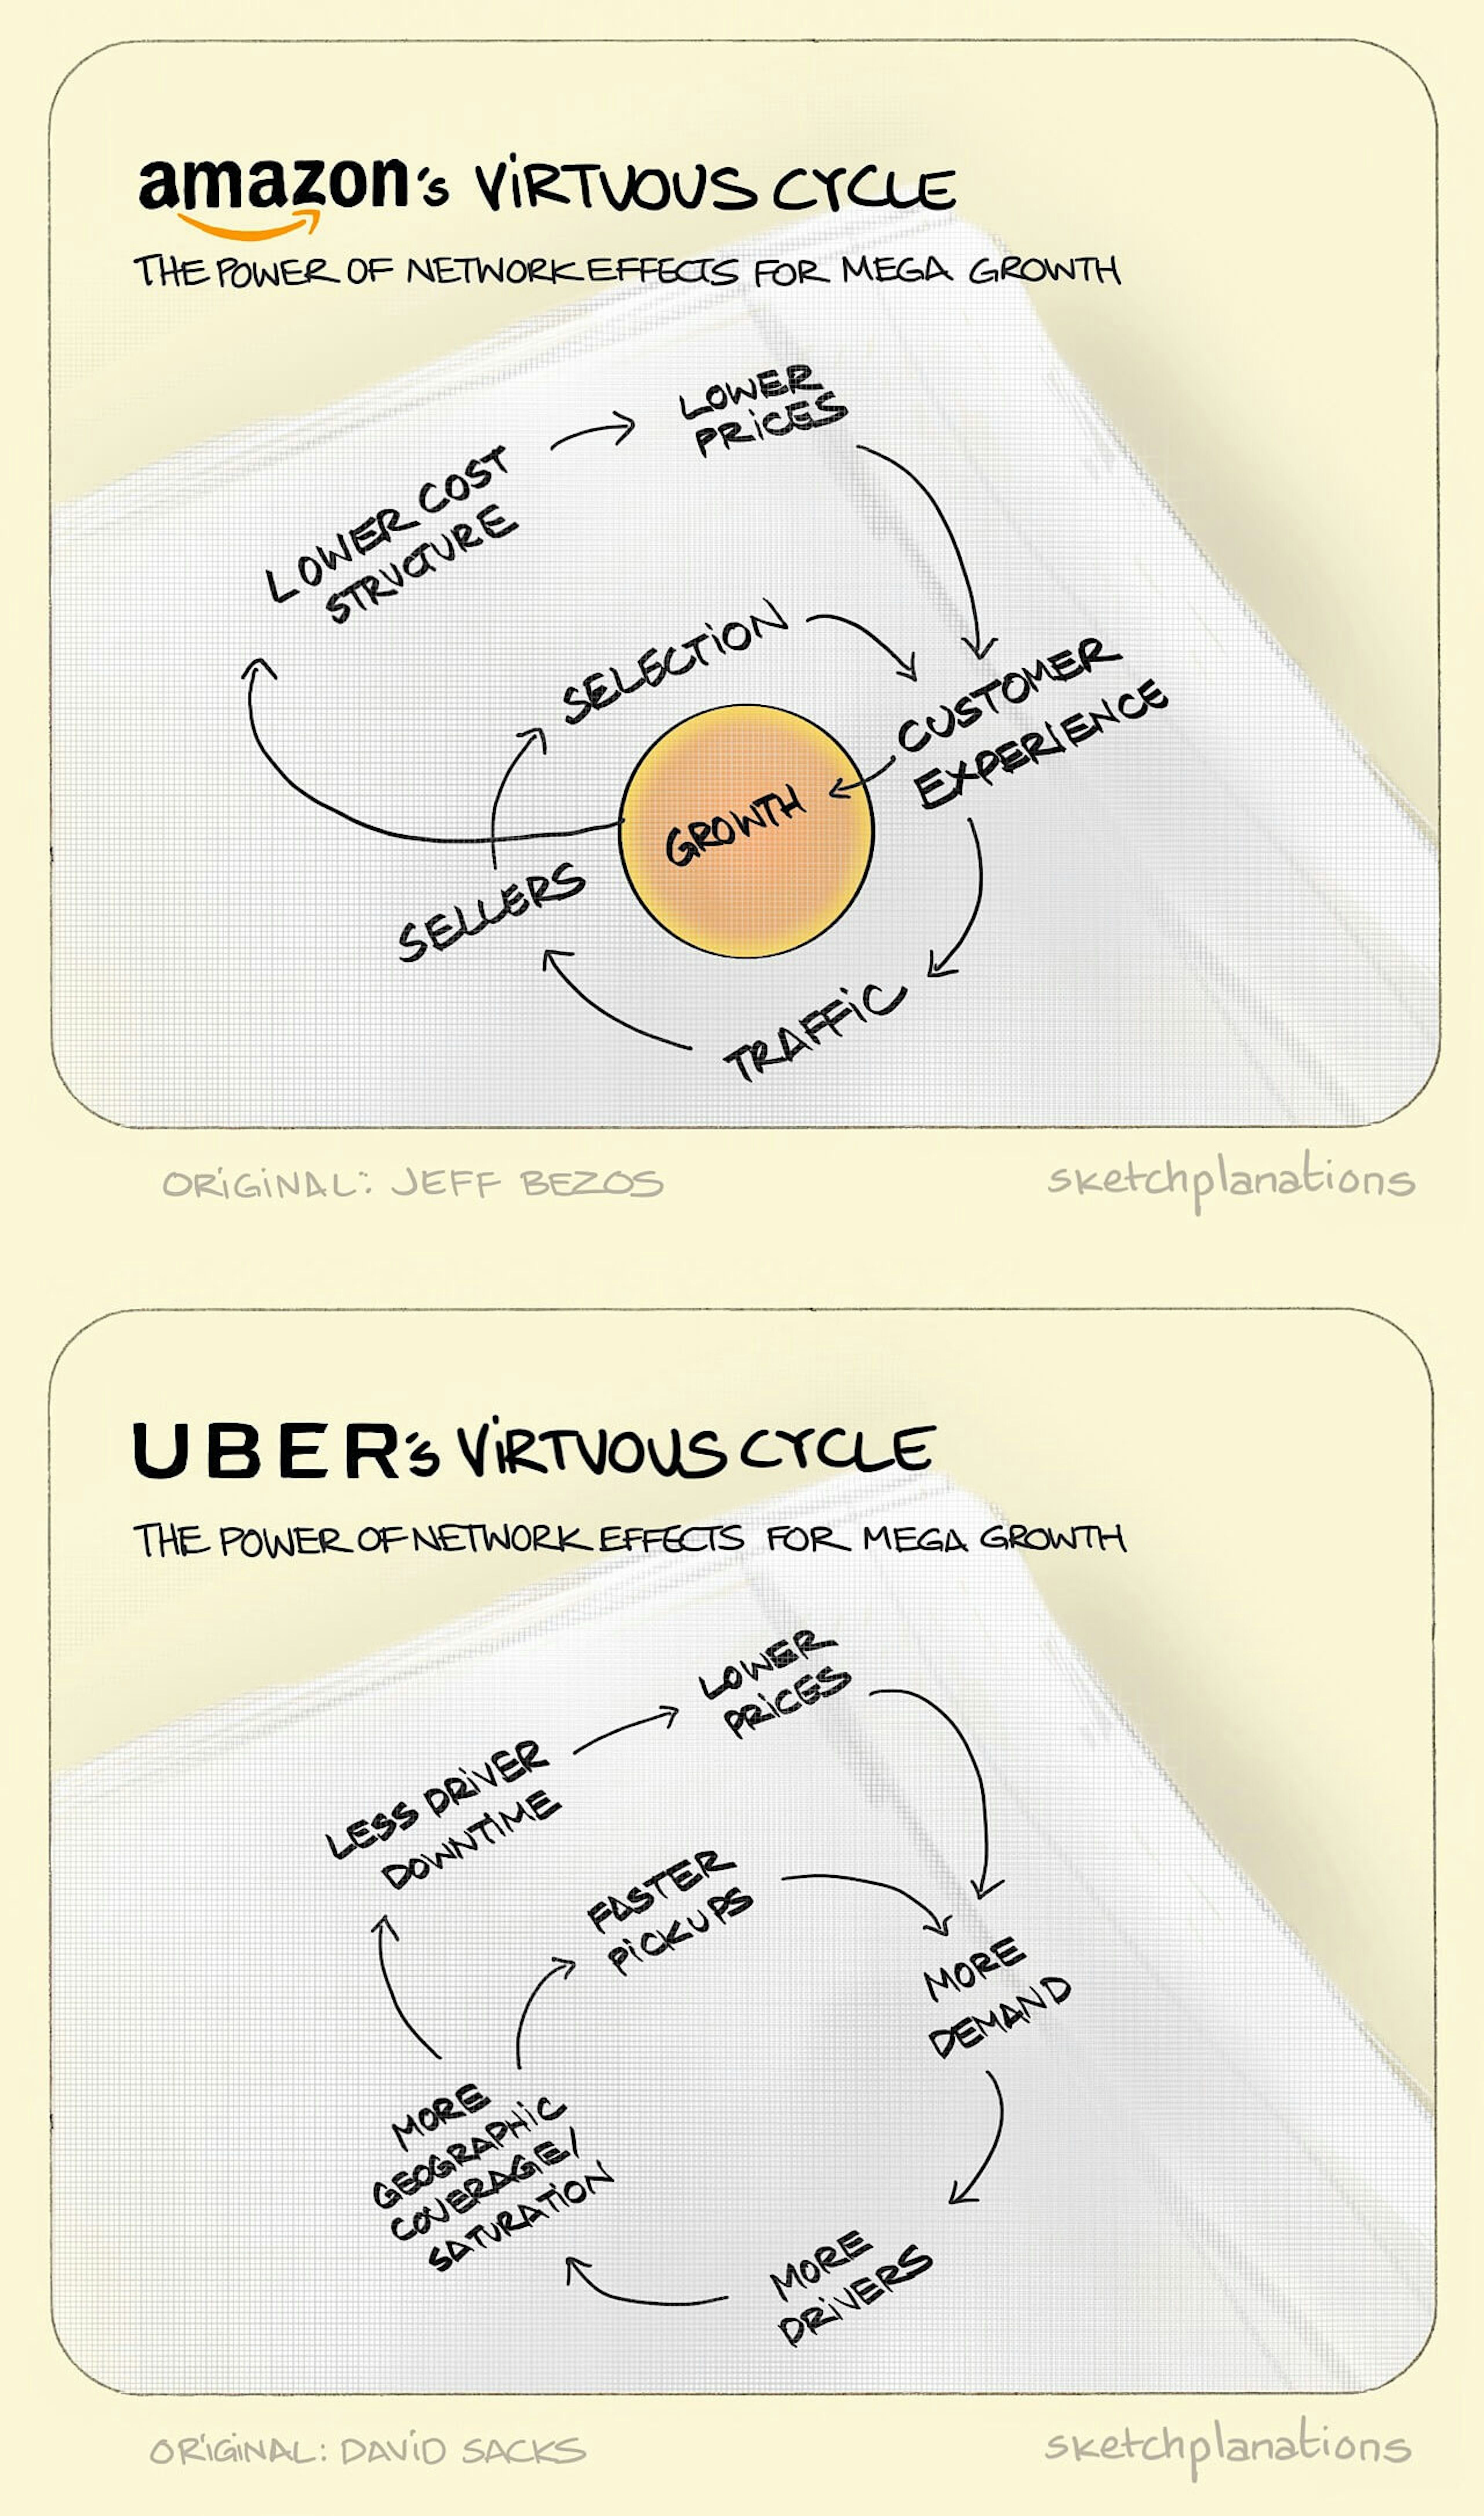 amazon's VIRTUOUS CYCLE
THE POWER OF NETWORK EFFECTS FOR MEGA GROWTH
LOWER
PRICES
LOWER COST
STRUCTURE
SELECTION
CUSTOMER
EXPERIENCE
GROWTH
SELLERS
TRAFFIC
ORIGINAL: JEFF BEZOS
sketchplanations
UBER's VIRTUOUS CYCLE
THE POWER OF NETWORK EFFECTS FOR MEGA GROWTH
LOWER
PRICES
LESS DRIVER
DOWNTIME
FASTER
PICKUPS
MORE
DEMAND
MORE
GEOGRAPHIC
COVERAGE/
SATURATION
MORE
DRIVERS
ORIGINAL: DAVID SACKS
sketchplanations